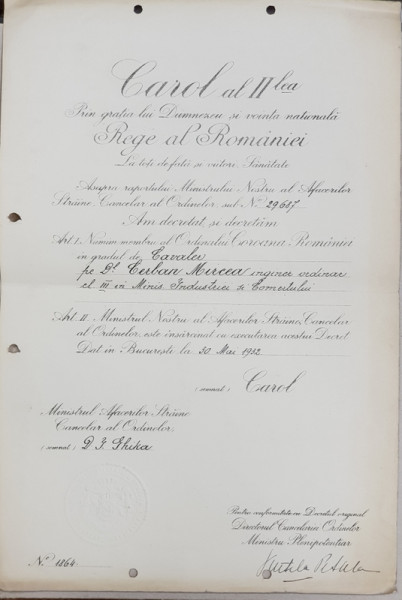 Carol al II lea
Prin grația lui Dumnezeu și voința națională
Rege al României
La toți de față și viitori, Sănătate
Asupra raportului Ministrului Nostru al Afacerilor
Străine, Cancelar al Ordinelor, sub No. 29617
Am decretat și decretăm
Art. I. Numim membru al Ordinului Coroana României
în gradul de Cavaler
pe Dl. Cerban Mircea inginer ordinar
cl. III in Minis. Industriei și Comerțului
Art. II. Ministrul Nostru al Afacerilor Străine, Cancelar
al Ordinelor, este însărcinat cu executarea acestui Decret.
Dat în București la 30 Mai 1932
(semnat) Carol
Ministrul Afacerilor Străine
Cancelar al Ordinelor,
(semnat) D. I. Ghika
Pentru conformitate cu Decretul original
Directorul Cancelariei Ordinelor
Ministru Plenipotențiar
No. 1864